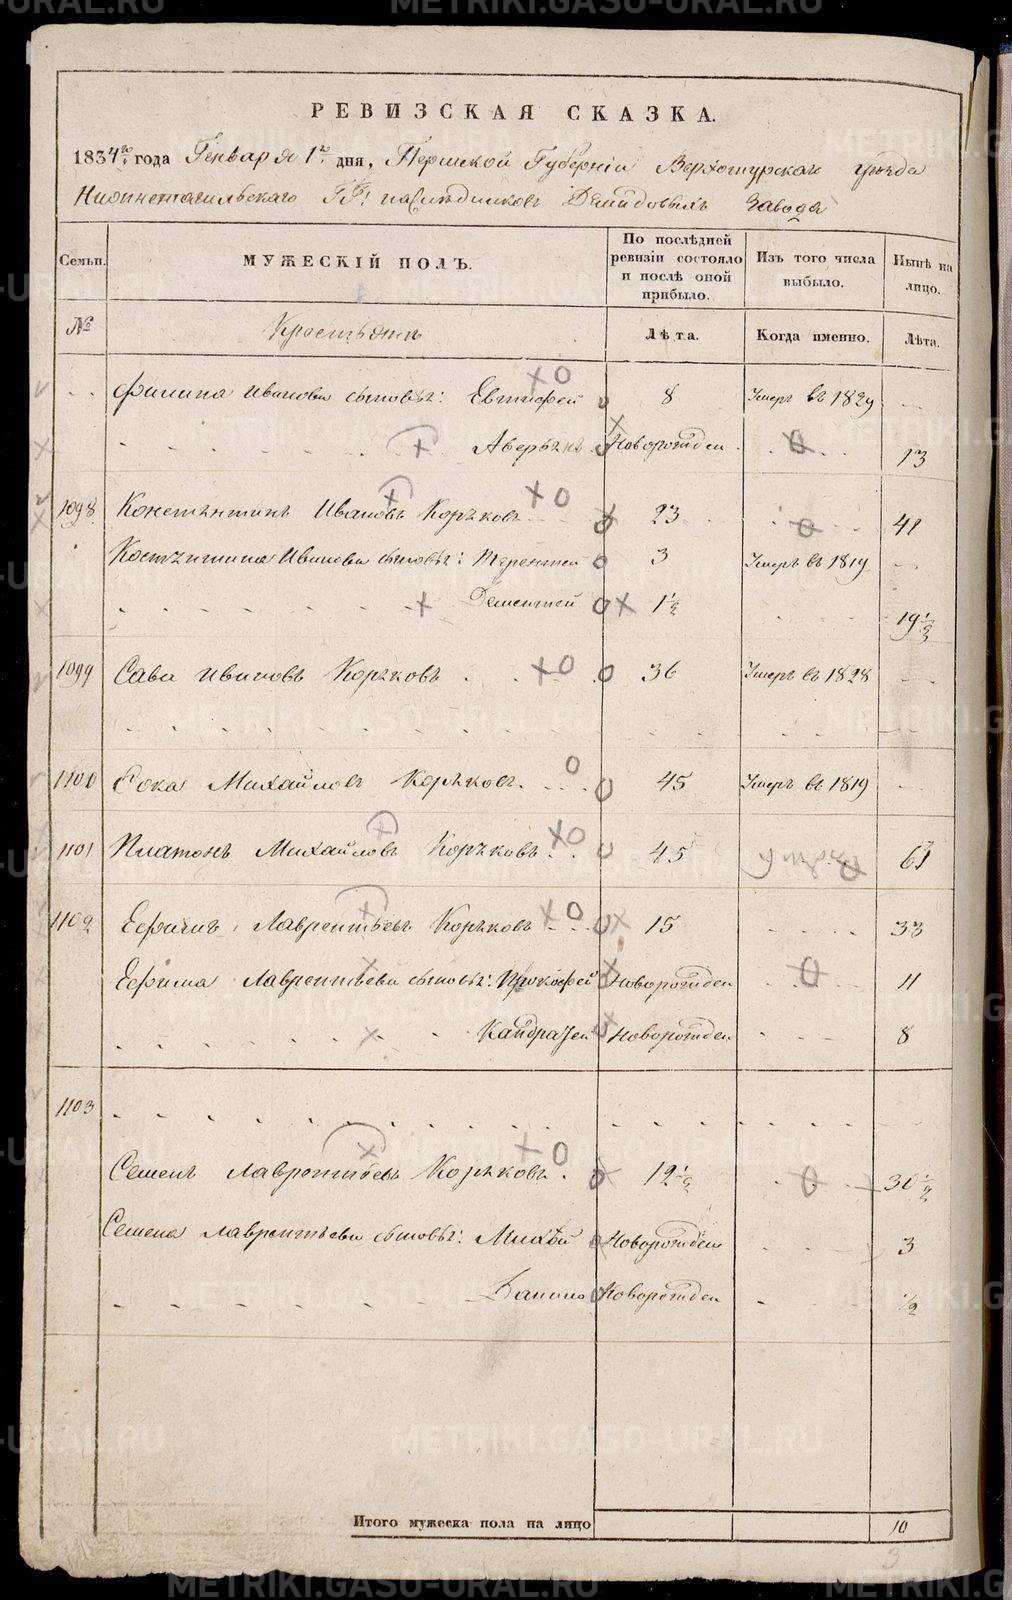 РЕВИЗСКАЯ СКАЗКА.
1834го года Генваря 1го дня, Пермской Губерніи Верхотурскаго уезда
Нижнетагильскаго ГГ: наследниковъ Демидовыхъ завода
Семьи. МУЖЕСКІЙ ПОЛЪ. По послѣдней ревизіи состояло и послѣ оной прибыло. Изъ того числа выбыло. Нынѣ на лицо.
№ Крестьяне Лѣта. Когда именно. Лѣта.
Филипа Иванова сыновья: Евтифей 8 Умеръ въ 1829
Аверьянъ Новорожден. 13
1098 Константинъ Ивановъ Коряковъ 23 41
Костянтина Иванова сыновья: Терентей 3 Умеръ въ 1819
Дементей 1½ 19½
1099 Сава Ивановъ Коряковъ 36 Умеръ въ 1828
1100 Фока Михайловъ Коряковъ 45 Умеръ въ 1819
1101 Платонъ Михайловъ Коряковъ 45 63
1102 Ефимъ Лаврентьевъ Коряковъ 15 33
Ефима Лаврентьева сыновья: Прокофей Новорожден 11
Кандратей Новорожден 8
1103
Семенъ Лаврентьевъ Коряковъ 12½ 30½
Семена Лаврентьева сыновья: Михей Новорожден 3
Данило Новорожден ½
Итого мужеска пола на лицо 10
3
METRIKI.GASO-URAL.RU